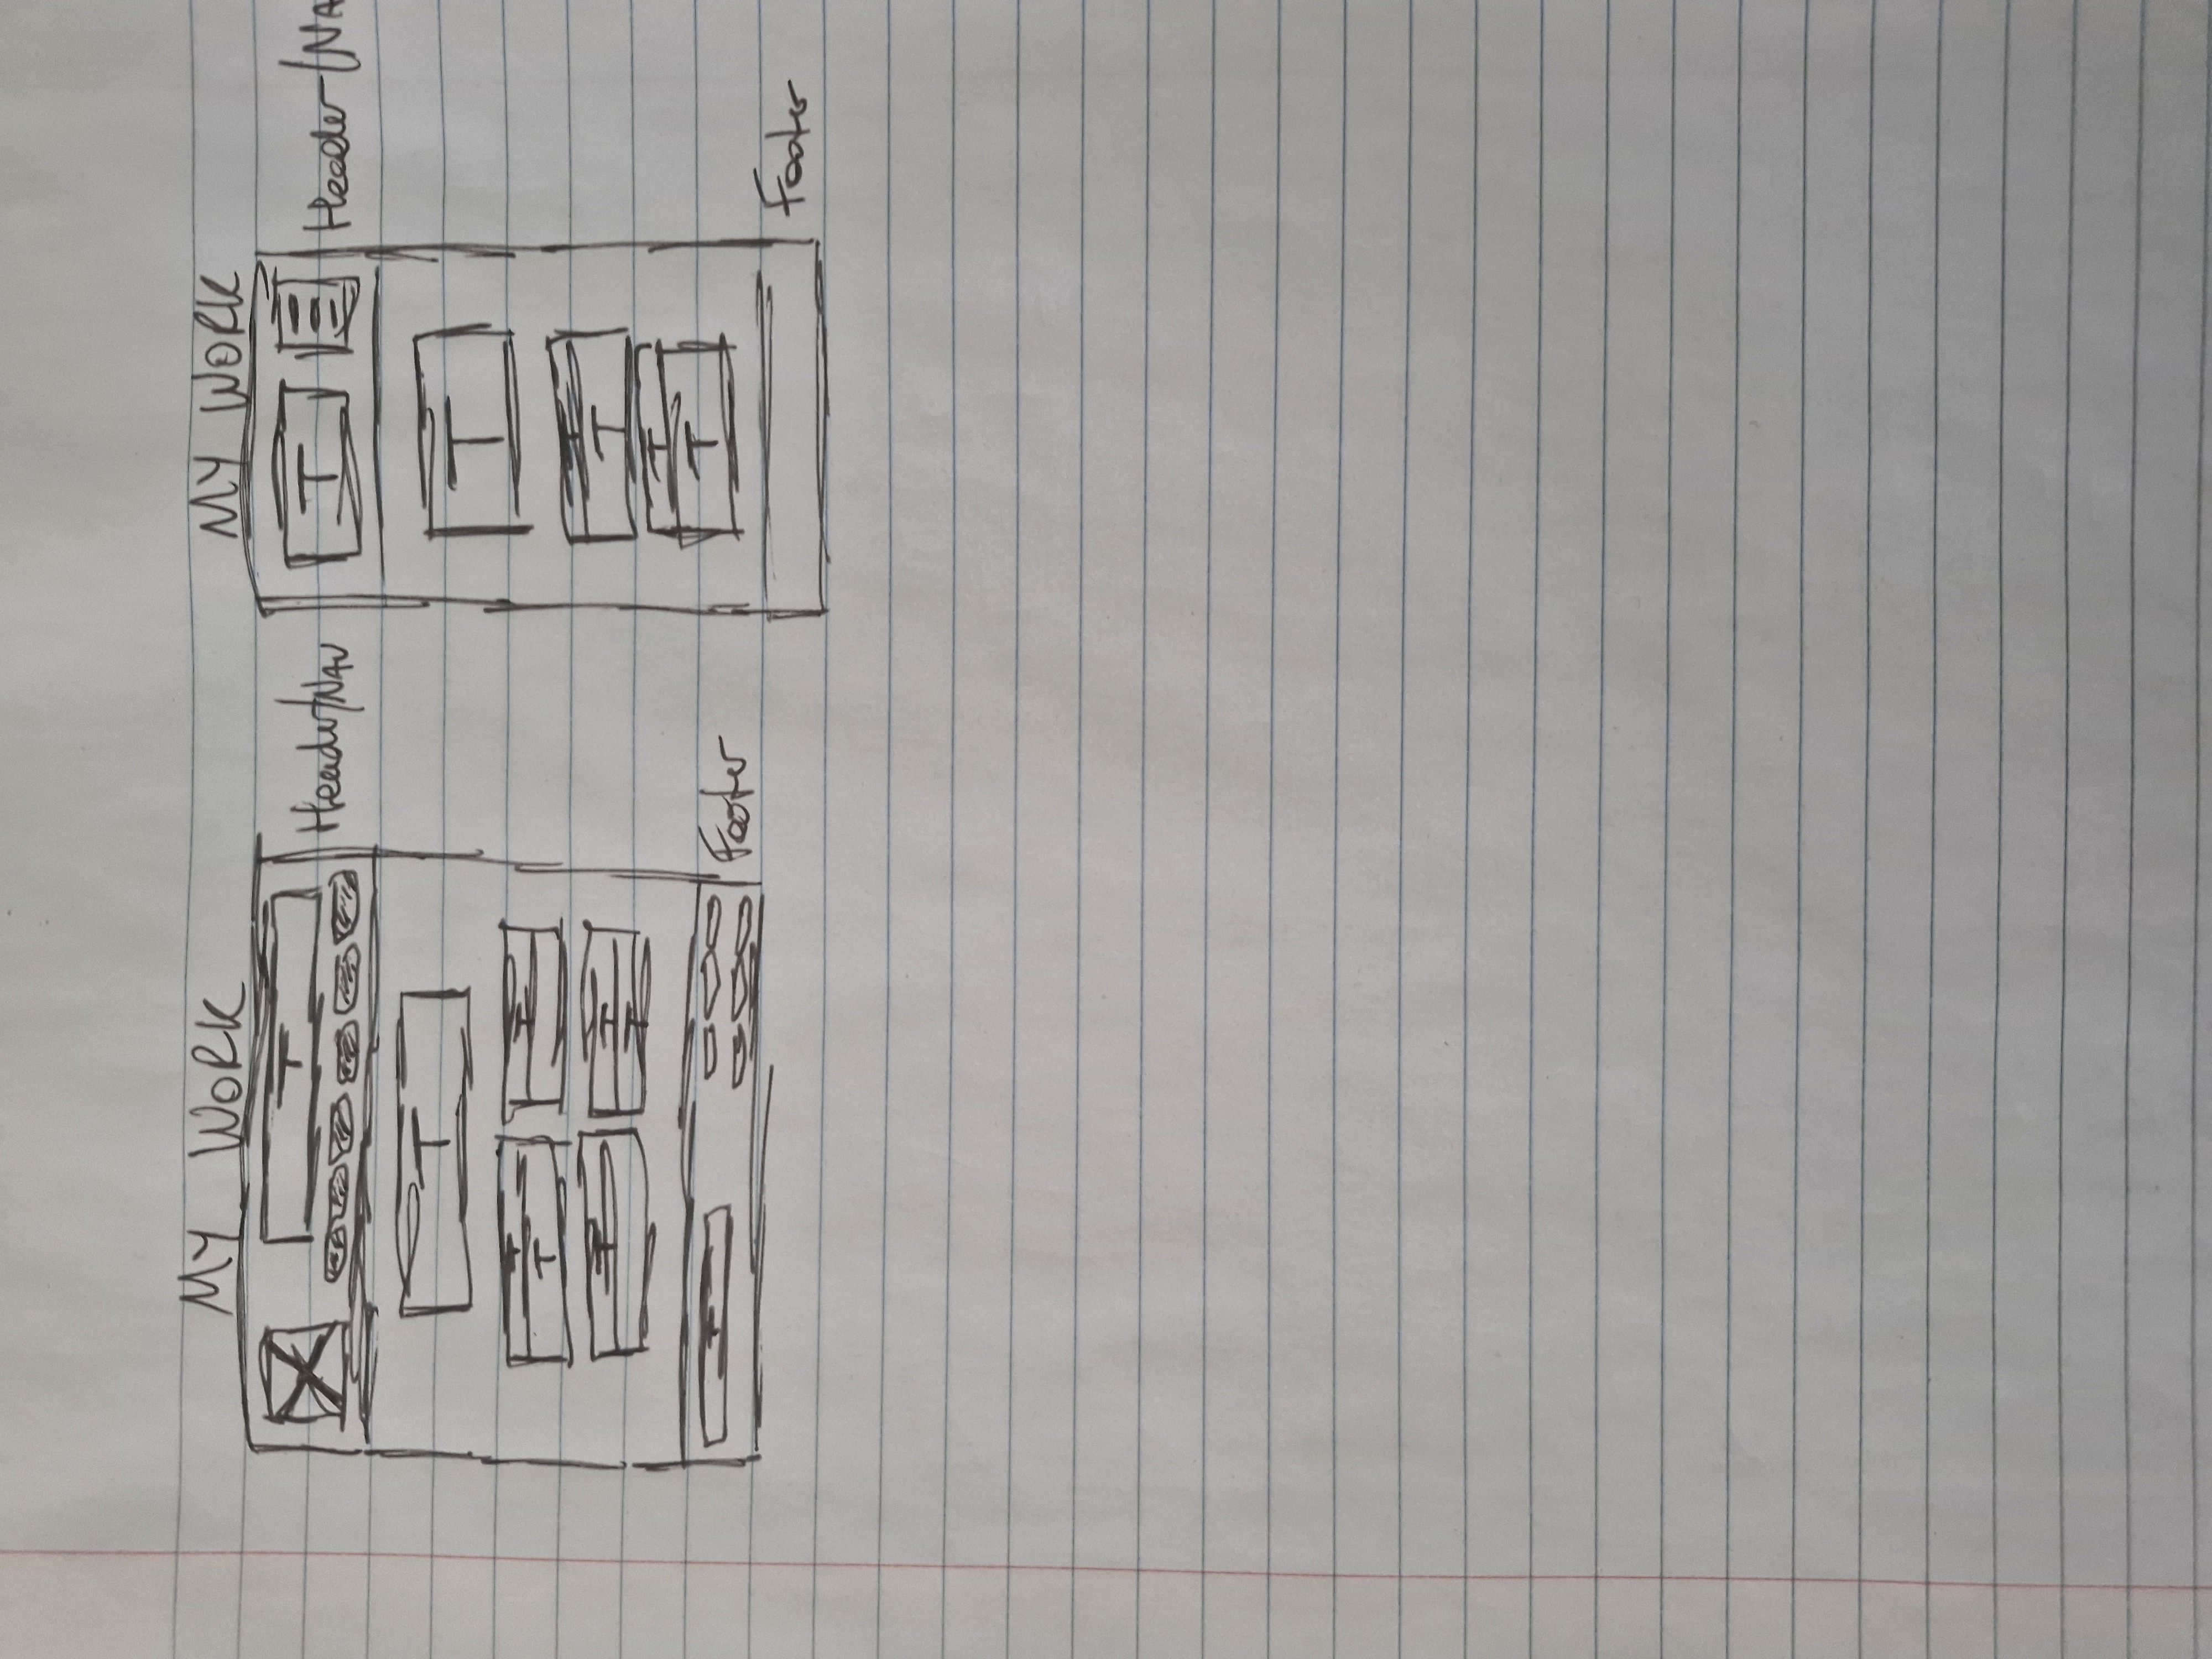 MY WORK
T
Header/Nav
T
T
T
T
T
T
T
T
T
T
Footer
MY WORK
T
Header/Na
T
T
T
T
T
Footer